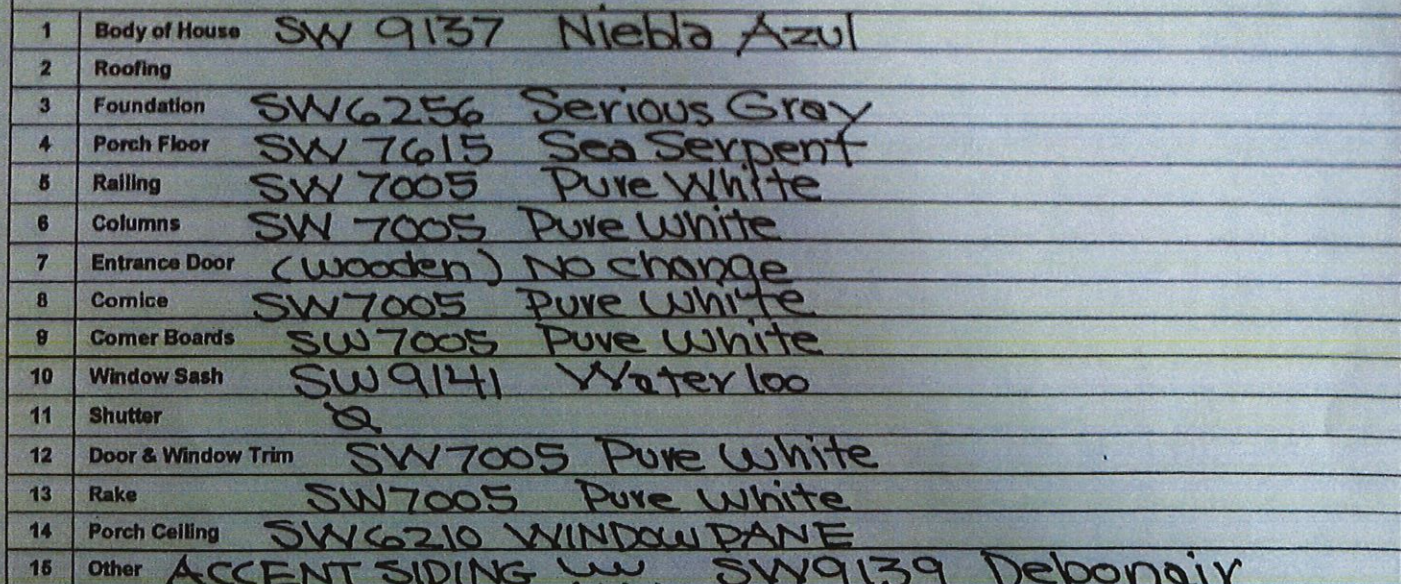 1 Body of House SW 9137 Niebla Azul
2 Roofing
3 Foundation SW6256 Serious Gray
4 Porch Floor SW 7615 Sea Serpent
5 Railing SW 7005 Pure White
6 Columns SW 7005 Pure White
7 Entrance Door (wooden) No change
8 Cornice SW7005 Pure White
9 Corner Boards SW7005 Pure White
10 Window Sash SW9141 Waterloo
11 Shutter
12 Door & Window Trim SW7005 Pure White
13 Rake SW7005 Pure White
14 Porch Ceiling SW6210 WINDOWPANE
15 Other ACCENT SIDING SW9139 Debonair